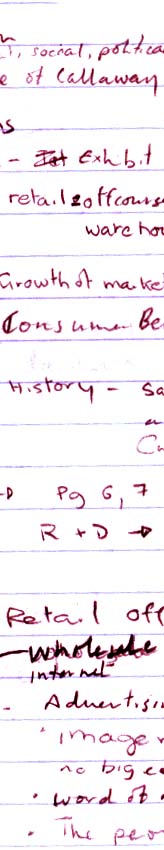 social, politica
e of Callaway
- Exhibit
retail & off cours
ware hou
Growth of marke
Consumer Be
History - Sa
a
Ca
Pg 6, 7
R + D →
Retail off
- Wholesale
internet
- Advertisi
• image
no big e
• word of
• The peo